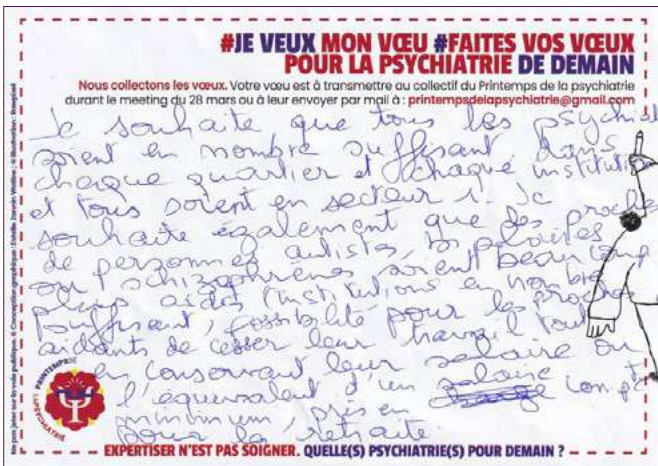 #JE VEUX MON VŒU #FAITES VOS VŒUX
POUR LA PSYCHIATRIE DE DEMAIN
Nous collectons les vœux. Votre vœu est à transmettre au collectif du Printemps de la psychiatrie
durant le meeting du 28 mars ou à leur envoyer par mail à : printempsdelapsychiatrie@gmail.com
Je souhaite que tous les psychiat
soient en nombre suffisant dans
chaque quartier et chaque institution
et tous soient en secteur 1. Je
souhaite également que des proches
de personnes autistes, bipolaires
ou schizophrènes soient beaucoup
plus aidés (institutions en nombre
suffisant, possibilité pour les proches
aidants de cesser leur travail tout
en conservant leur salaire ou
l'équivalent d'un salaire
minimum, pris en compte
pour la retraite.
PRINTEMPS DE
LA PSYCHIATRIE
EXPERTISER N'EST PAS SOIGNER. QUELLE(S) PSYCHIATRIE(S) POUR DEMAIN ?
Ne pas jeter sur la voie publique.